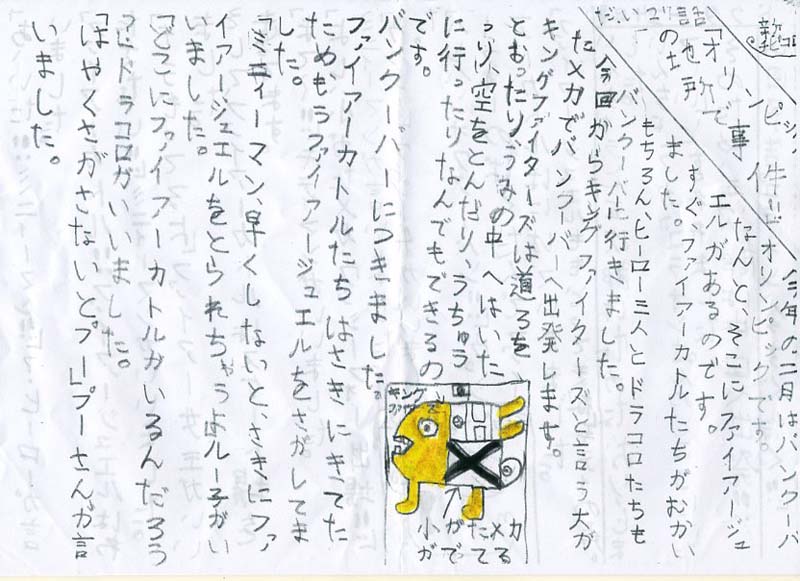 「オリンピック事件」
今年の二月はバンクーバ
ーオリンピックです。
なんと、そこにファイアージュ
エルがあるのです。
すぐファイアーカトルたちがむかい
ました。
もちろん、ヒーロー三人とドラコロたちも
バンクーバーに行きました。
今回からキングファイターズと言う大が
たメカでバンクーバーへ出発します。
キングファイターズは道ろを
とおったり、うみの中へはいた
っり、空をとんだり、うちゅう
に行ったりなんでもできるの
です。
バンクーバーにつきました。
ファイアーカトルたちはさきにきてた
ためもうファイアージュエルをさがしてま
した。
「ミニィーマン、早くしないと、さきにファ
イアージュエルをとられちゃうよ」ルー子がい
いました。
「どこにファイアーカトルがいるんだろう
」とドラコロがいいました。
「はやくさがさないとプー」プーさんが言
いました。
キング
小がたメカ
がでてる